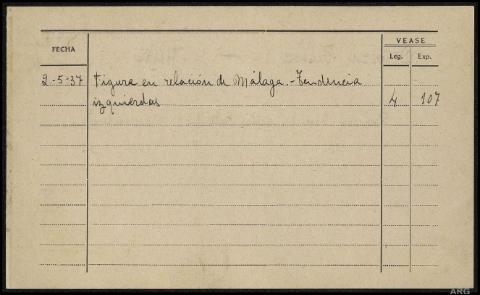 VEASE
FECHA
Leg. Exp.
2-5-37 Figura en relación de Málaga.-Tendencia
izquierdas 4 107
ARG